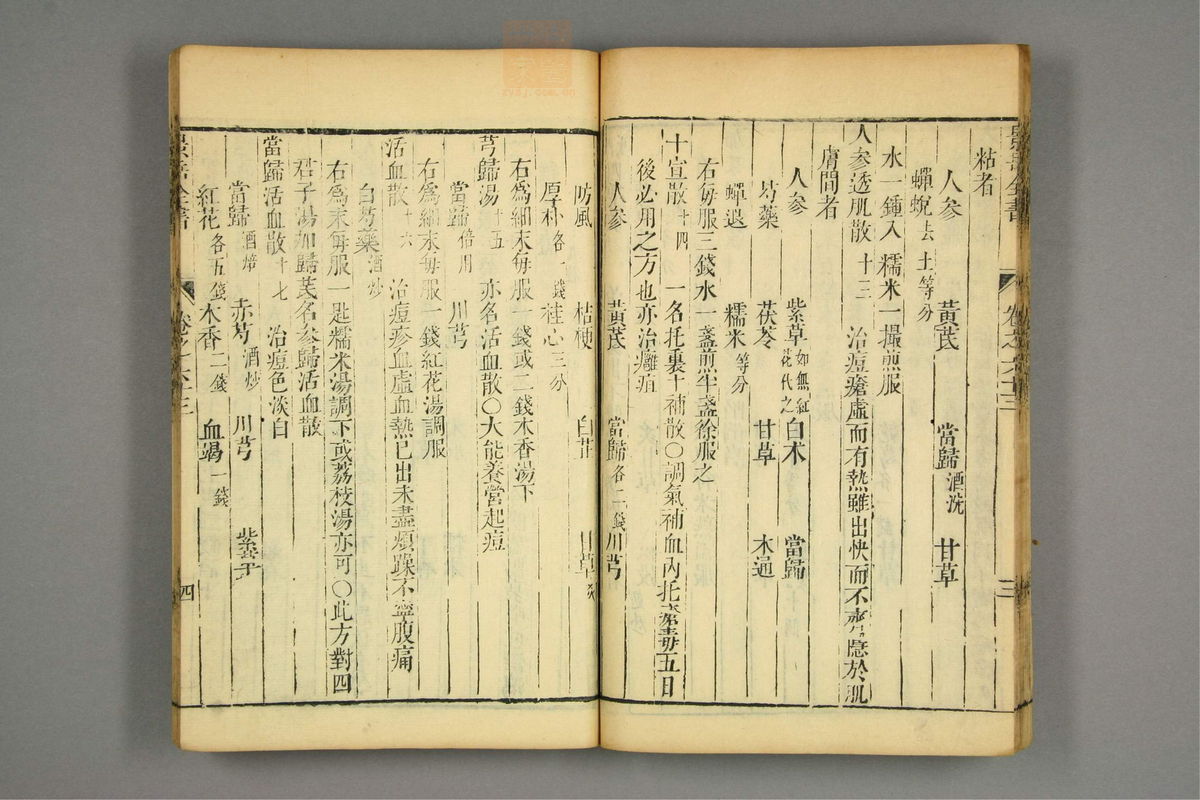 粘者
人參 黃芪 當歸酒洗 甘草
蟬蛻去土等分
水一鍾入糯米一撮煎服
人參透肌散十三 治痘瘡虛而有熱雖出快而不齊隱於肌
膚間者
人參 紫草如無紅花代之 白朮 當歸
芍藥 茯苓 甘草 木通
蟬退 糯米等分
右每服三錢水一盞煎半盞徐服之
十宣散十四 一名托裏十補散○調氣補血內托瘡毒五日
後必用之方也亦治癰疽
人參 黃芪 當歸各二錢 川芎
景岳全書 卷之六十三 三
防風 桔梗 白芷 甘草炙
厚朴各一錢 桂心三分
右為細末每服一錢或二錢木香湯下
芎歸湯十五 亦名活血散○大能養營起痘
當歸倍用 川芎
右為細末每服一錢紅花湯調服
活血散十六 治痘疹血虛血熱已出未盡煩躁不寧腹痛
白芍藥酒炒
右為末每服一匙糯米湯調下或荔枝湯亦可○此方對四
君子湯加歸芪名參歸活血散
當歸活血散十七 治痘色淡白
當歸酒焙 赤芍酒炒 川芎 紫草
紅花各五錢 木香二錢 血竭一錢
景岳全書 卷之六十三 四